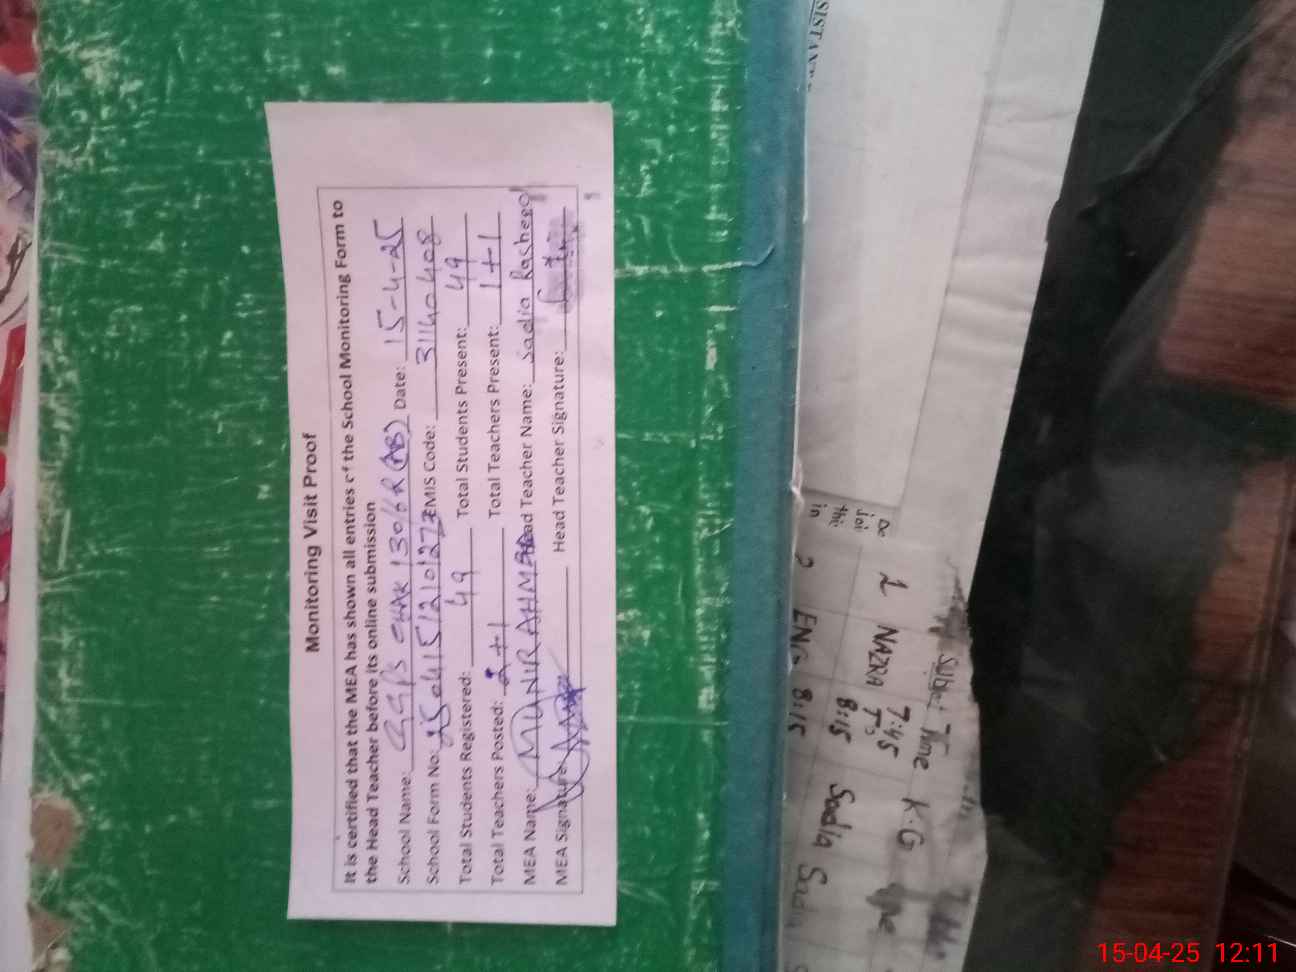 Monitoring Visit Proof
It is certified that the MEA has shown all entries of the School Monitoring Form to
the Head Teacher before its online submission
School Name: GGPS CHAK 130/6R (AB) Date: 15-4-25
School Form No: EMIS Code: 31140408
Total Students Registered: 49 Total Students Present: 49
Total Teachers Posted: 2+1 Total Teachers Present: 1+1
MEA Name: MUNIR AHMAD Head Teacher Name: Sadia Rasheed
MEA Signature: Head Teacher Signature:
SISTAN
Time K.G
1 NAZRA 7:45 To 8:15 Sadia
2 ENG 8:15
15-04-25 12:11